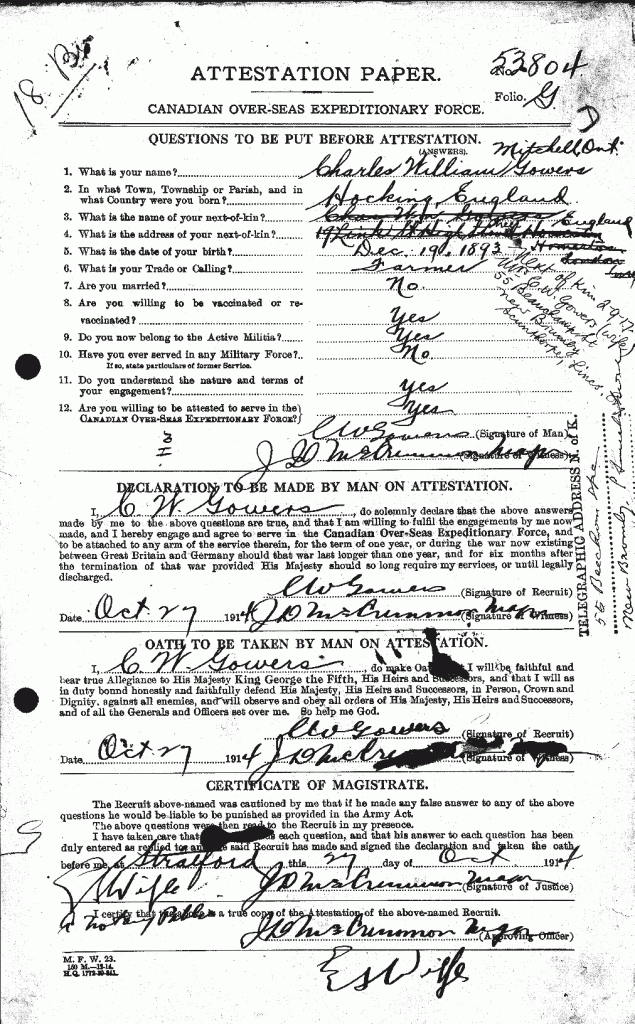 18
53804
No.
ATTESTATION PAPER.
Folio. G
CANADIAN OVER-SEAS EXPEDITIONARY FORCE.
QUESTIONS TO BE PUT BEFORE ATTESTATION.
(ANSWERS).
Mitchell, Ont.
1. What is your name? Charles William Gowers
2. In what Town, Township or Parish, and in
what Country were you born? Hocking, England
3. What is the name of your next-of-kin?
4. What is the address of your next-of-kin? England
5. What is the date of your birth? Dec. 19. 1893
6. What is your Trade or Calling? Farmer
7. Are you married? No.
8. Are you willing to be vaccinated or re-
vaccinated? Yes
9. Do you now belong to the Active Militia? Yes
10. Have you ever served in any Military Force? No
If so, state particulars of former Service.
11. Do you understand the nature and terms of
your engagement? Yes
12. Are you willing to be attested to serve in the
CANADIAN OVER-SEAS EXPEDITIONARY FORCE? Yes
Next of kin 2-9-17
Mrs C.W. Gowers (wife)
New Brumby
Scunthorpe, Lincs.
TELEGRAPHIC ADDRESS N. of K.
3
I
C W Gowers (Signature of Man)
J D McCrimmon Major (Signature of Witness)
DECLARATION TO BE MADE BY MAN ON ATTESTATION.
I, C W Gowers, do solemnly declare that the above answers
made by me to the above questions are true, and that I am willing to fulfil the engagements by me now
made, and I hereby engage and agree to serve in the Canadian Over-Seas Expeditionary Force, and
to be attached to any arm of the service therein, for the term of one year, or during the war now existing
between Great Britain and Germany should that war last longer than one year, and for six months after
the termination of that war provided His Majesty should so long require my services, or until legally
discharged.
C W Gowers (Signature of Recruit)
Date Oct. 27 1914 J D McCrimmon Major (Signature of Witness)
OATH TO BE TAKEN BY MAN ON ATTESTATION.
I, C W Gowers, do make Oath, that I will be faithful and
bear true Allegiance to His Majesty King George the Fifth, His Heirs and Successors, and that I will as
in duty bound honestly and faithfully defend His Majesty, His Heirs and Successors, in Person, Crown and
Dignity, against all enemies, and will observe and obey all orders of His Majesty, His Heirs and Successors,
and of all the Generals and Officers set over me. So help me God.
C W Gowers (Signature of Recruit)
Date Oct 27 1914 (Signature of Witness)
CERTIFICATE OF MAGISTRATE.
The Recruit above-named was cautioned by me that if he made any false answer to any of the above
questions he would be liable to be punished as provided in the Army Act.
The above questions were then read to the Recruit in my presence.
I have taken care that each question, and that his answer to each question has been
duly entered as replied to, and the said Recruit has made and signed the declaration and taken the oath
before me, at Stratford this 27 day of Oct 1914
J D McCrimmon Major (Signature of Justice)
a notary Public
I certify that the above is a true copy of the Attestation of the above-named Recruit.
J D McCrimmon Major (Approving Officer)
M. F. W. 23.
150 M.—12-14.
H.Q. 1772-39-241.